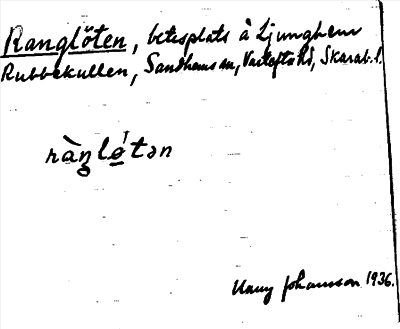 Ranglöten, betesplats å Ljunghem
Rubbekullen, Sandhems sn, Vartofta hd, Skarab. l.
ràŋlǿtən
Nanny Johansson 1936.